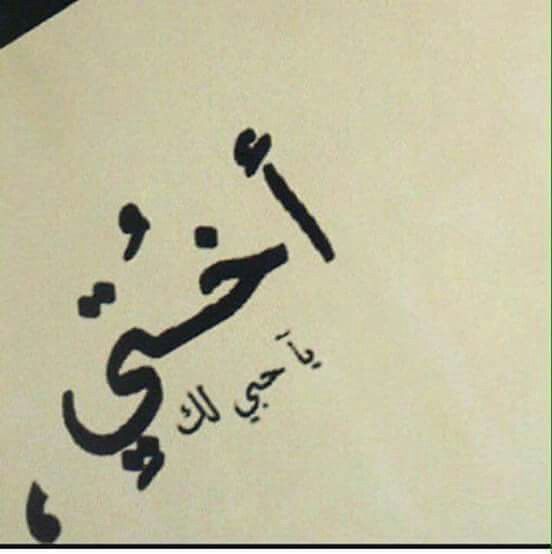 أخُتيِ ،
يآ حبي لك